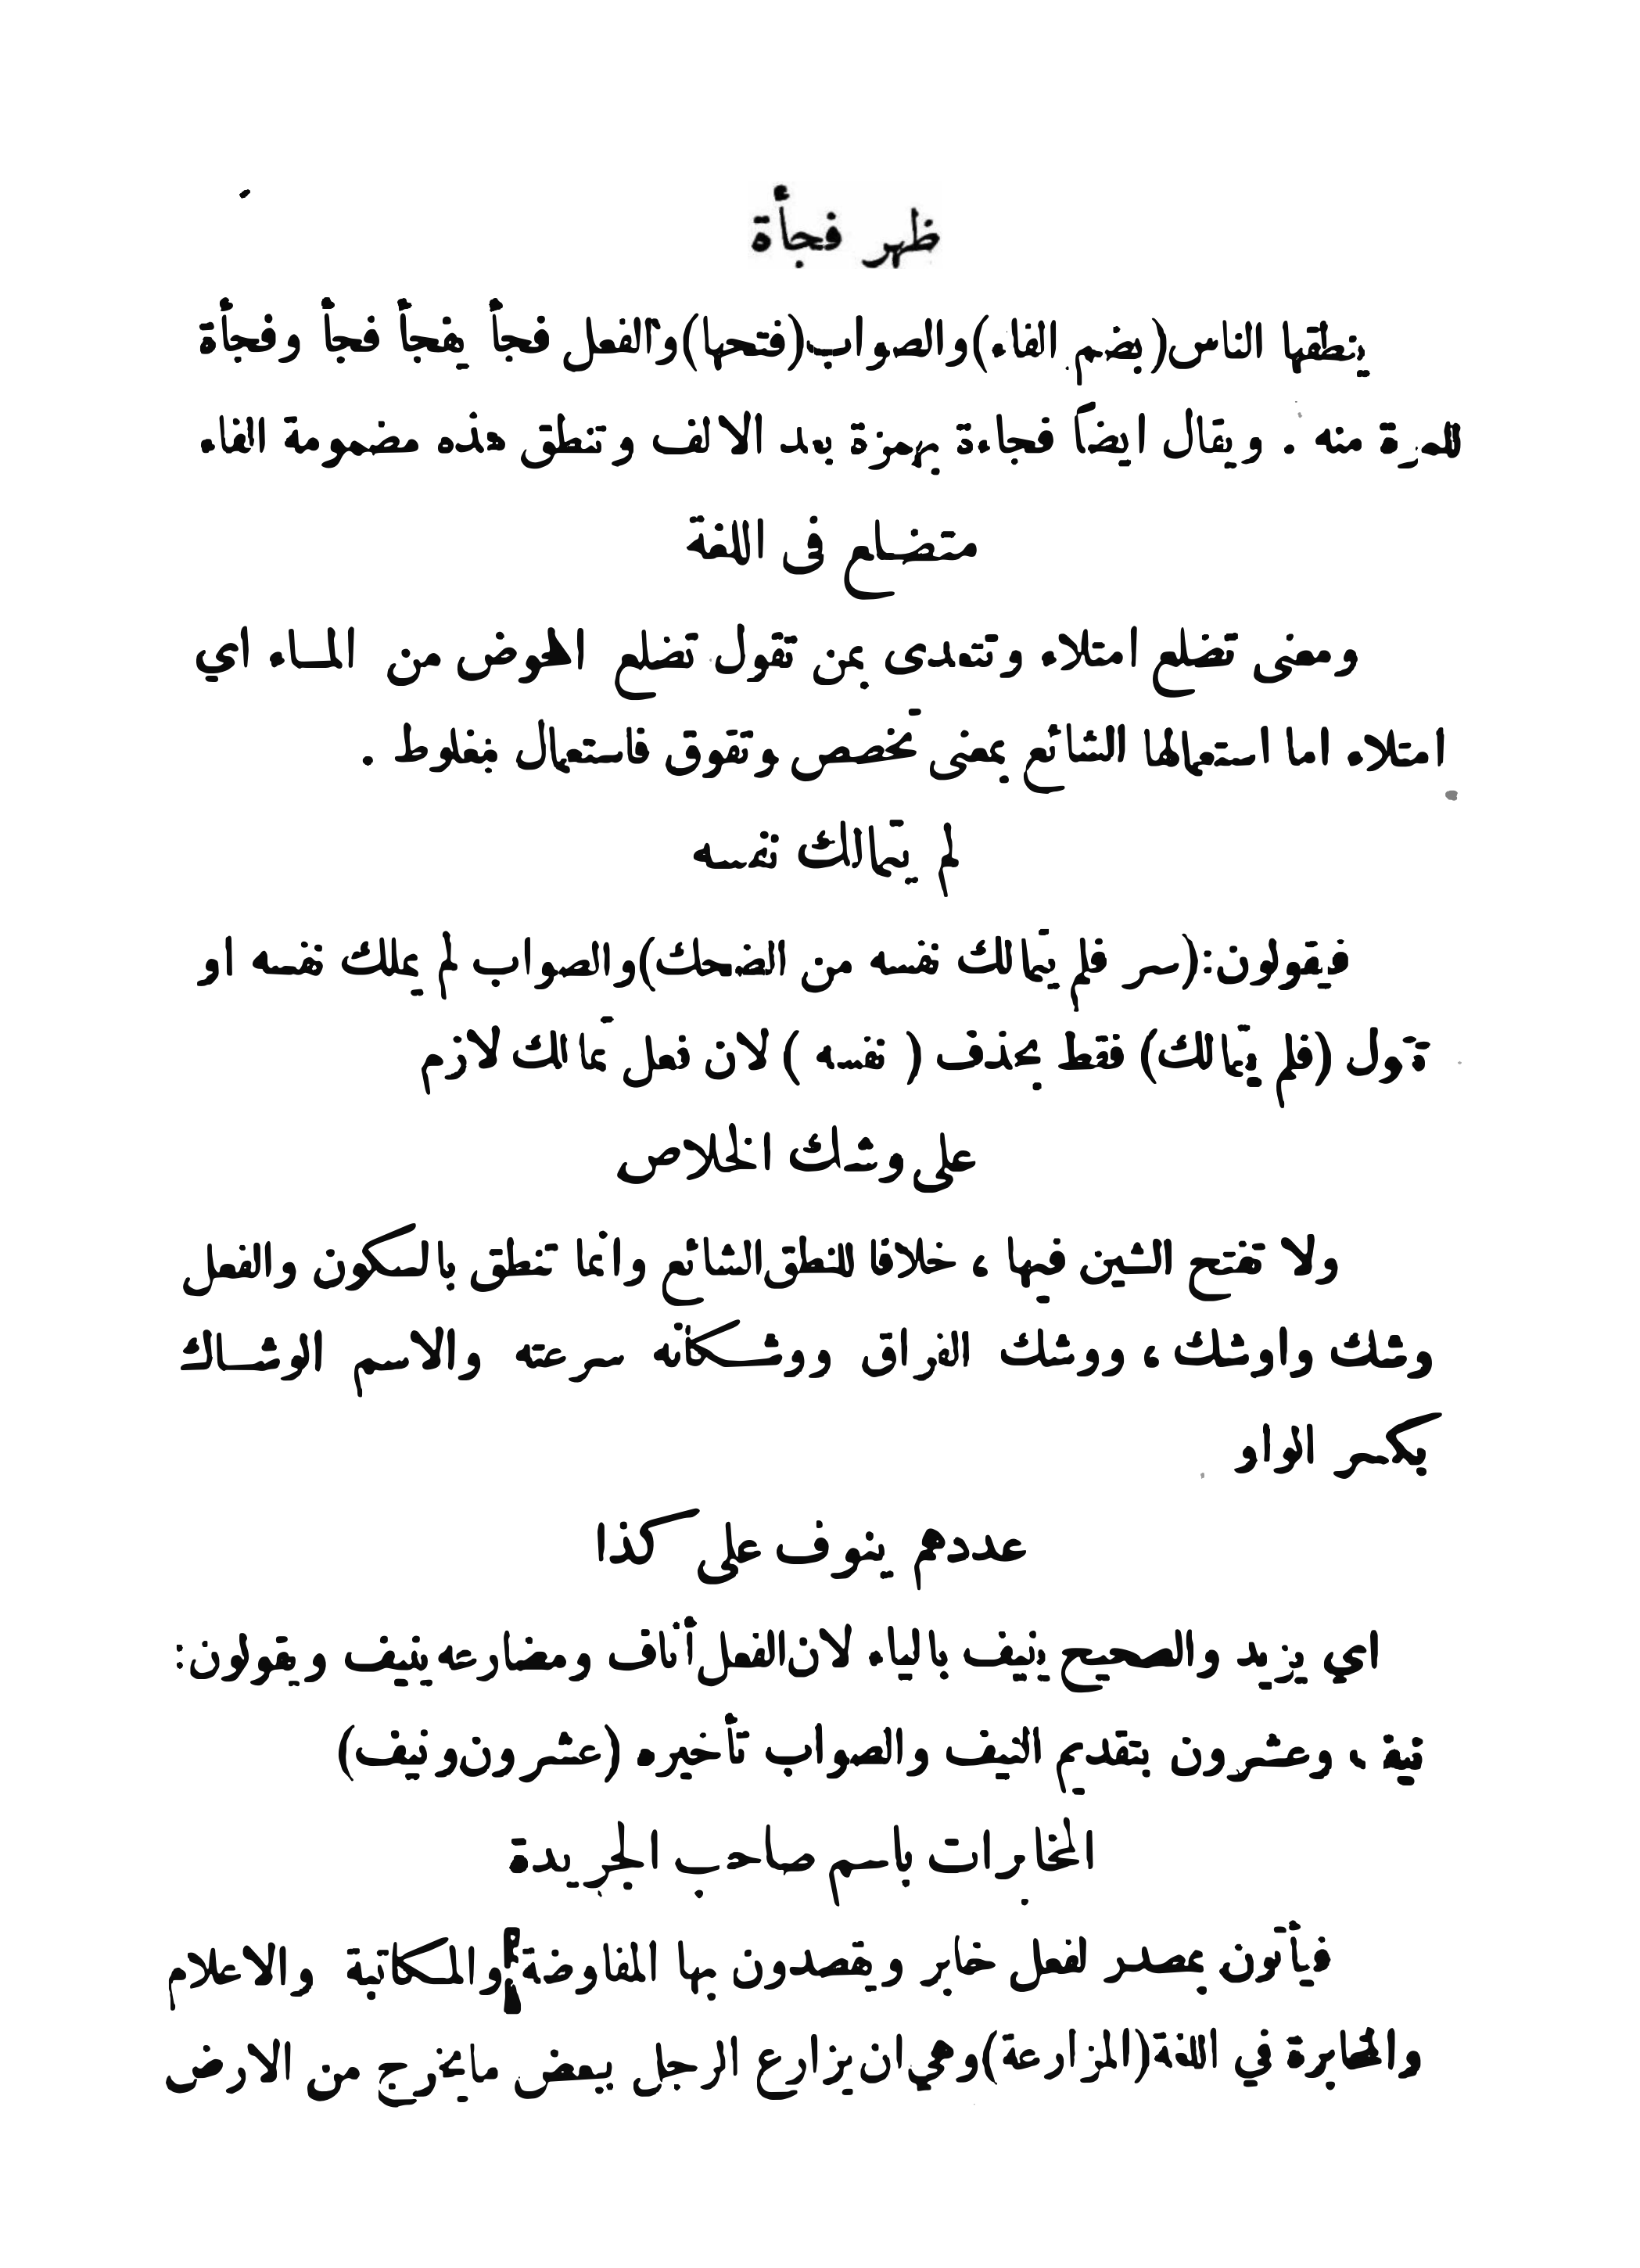 ظهر فجأة
ينطقها الناس (بضم الفاء) والصواب (فتحها) والفعل فجأ يفجأ فجأ وفجأة
للمرة منه . ويقال ايضاً فجاءة بهمزة بعد الالف وتنطق هذه مضمومة الفاء
متضلع فى اللغة
ومعنى تضلع امتلاء وتتعدى بمن تقول تضلع الحوض من الماء اي
امتلاء اما استعمالها الشائع بمعنى تخصص وتفوق فاستعمال مغلوط .
لم يتمالك نفسه
فيقولون: (سر فلم يتمالك نفسه من الضحك) والصواب لم يملك نفسه او
تقول (فلم يتمالك) فقط بحذف ( نفسه ) لان فعل تمالك لازم
على وشك الخلاص
ولا تفتح الشين فيها ، خلافا للنطق الشائع وانما تنطق بالسكون والفعل
وشك واوشك ، ووشك الفراق ووشكانه سرعته والاسم الوشاك
بكسر الواو
عددهم ينوف على كذا
اي يزيد والصحيح ينيف بالياء لان الفعل أناف ومضارعه ينيف ويقولون:
نيف ، وعشرون بتقديم النيف والصواب تأخيره (عشرون ونيف)
المخابرات باسم صاحب الجريدة
فيأتون بمصدر لفعل خابر ويقصدون بها المفاوضة والمكاتبة والاعلام
والمخابرة في اللغة (المزارعة) وهي ان يزارع الرجل ببعض مايخرج من الارض